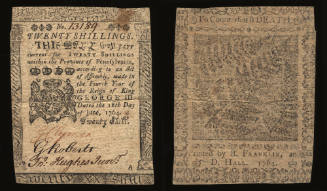 No. 13189
TWENTY SHILLINGS.
THIS BILL shall pass
current for TWENTY SHILLINGS
within the Province of Pennsylvania,
according to an Act
of Assembly, made in
the Fourth Year of
the Reign of King
GEORGE III.
Dated the 18th Day
of June, 1764.
Twenty Shill.
G Roberts
Hughes Junr
Twenty Shill
To Counterfeit is DEATH
Printed by B. FRANKLIN, and
D. HALL. 1764.